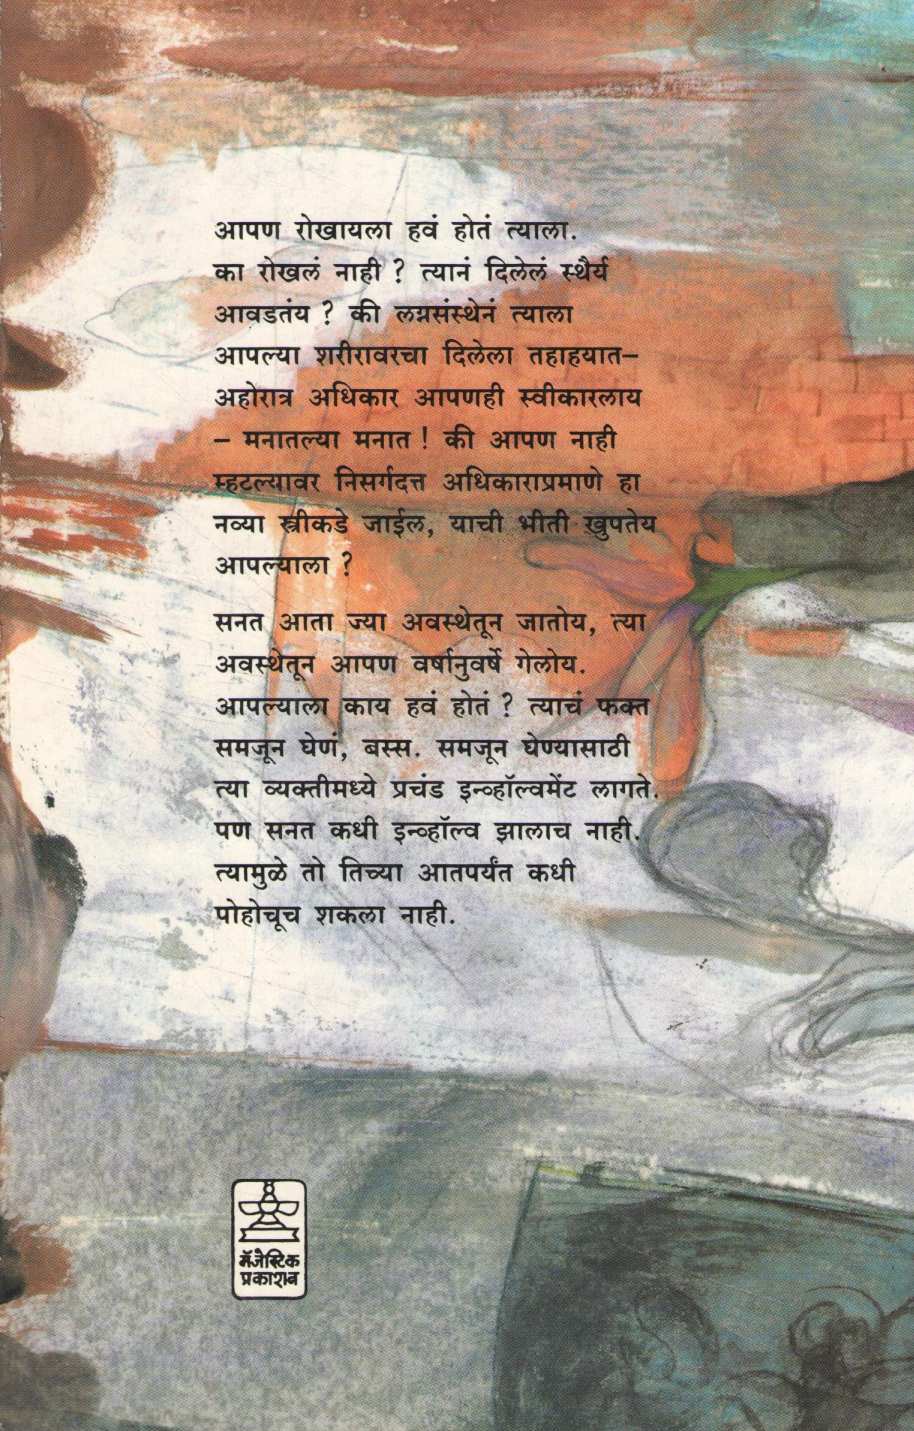 आपण रोखायला हवं होतं त्याला.
का रोखलं नाही ? त्यानं दिलेलं स्थैर्य
आवडतंय ? की लग्नसंस्थेनं त्याला
आपल्या शरीरावरचा दिलेला तहाहयात–
अहोरात्र अधिकार आपणही स्वीकारलाय
– मनातल्या मनात ! की आपण नाही
म्हटल्यावर निसर्गदत्त अधिकाराप्रमाणे हा
नव्या स्त्रीकडे जाईल, याची भीती खुपतेय
आपल्याला ?
सनत आता ज्या अवस्थेतून जातोय, त्या
अवस्थेतून आपण वर्षानुवर्षे गेलोय.
आपल्याला काय हवं होतं ? त्याचं फक्त
समजून घेणं, बस्स. समजून घेण्यासाठी
त्या व्यक्तीमध्ये प्रचंड इन्व्हॉल्वमेंट लागते.
पण सनत कधी इन्व्हॉल्व झालाच नाही.
त्यामुळे तो तिच्या आतपर्यंत कधी
पोहोचूच शकला नाही.
मॅजेस्टिक
प्रकाशन